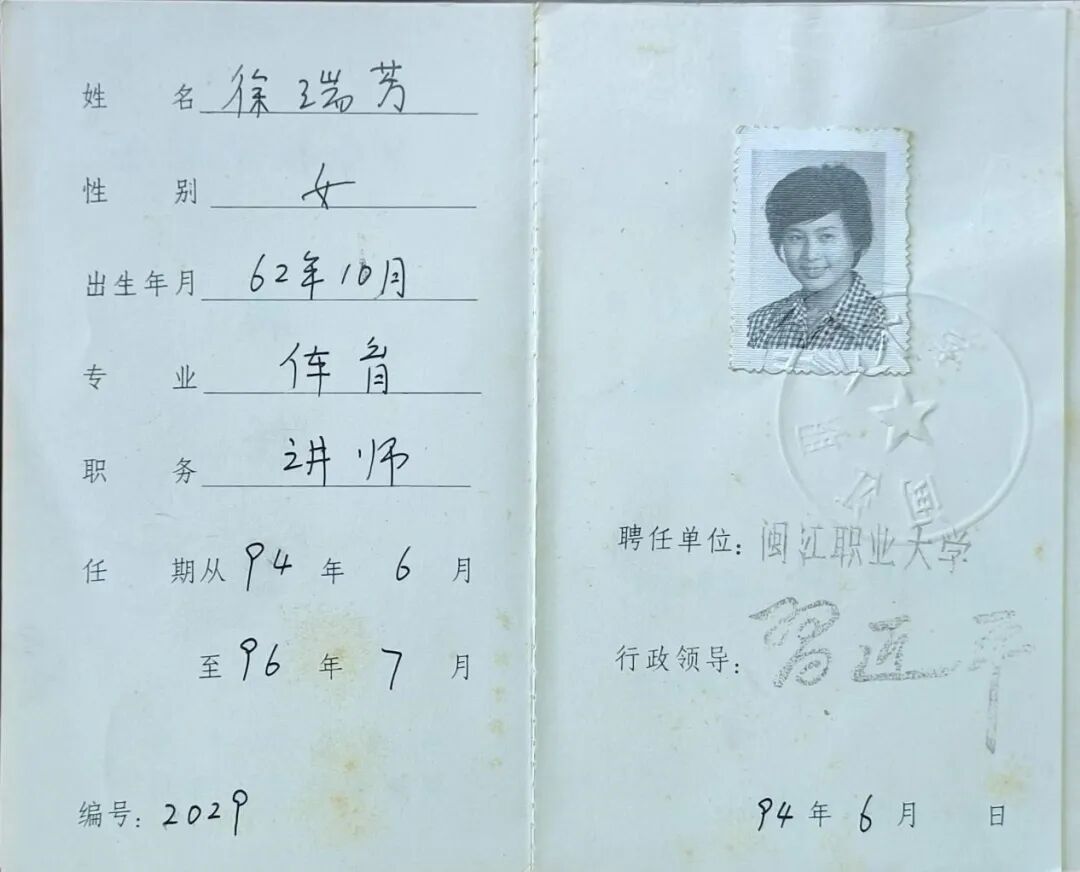 姓名 徐瑞芳
性别 女
出生年月 62年10月
专业 体育
职务 讲师
任期从94年6月
至96年7月
编号：2029
聘任单位：闽江职业大学
行政领导：习近平
94年6月 日